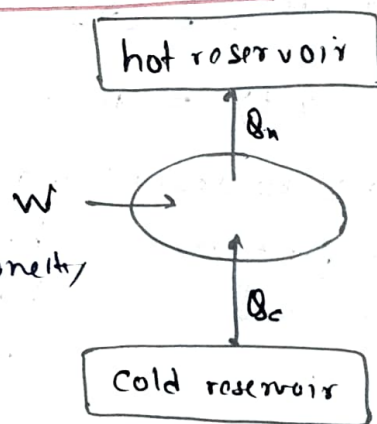 hot reservoir
Qn
W
Qc
Cold reservoir